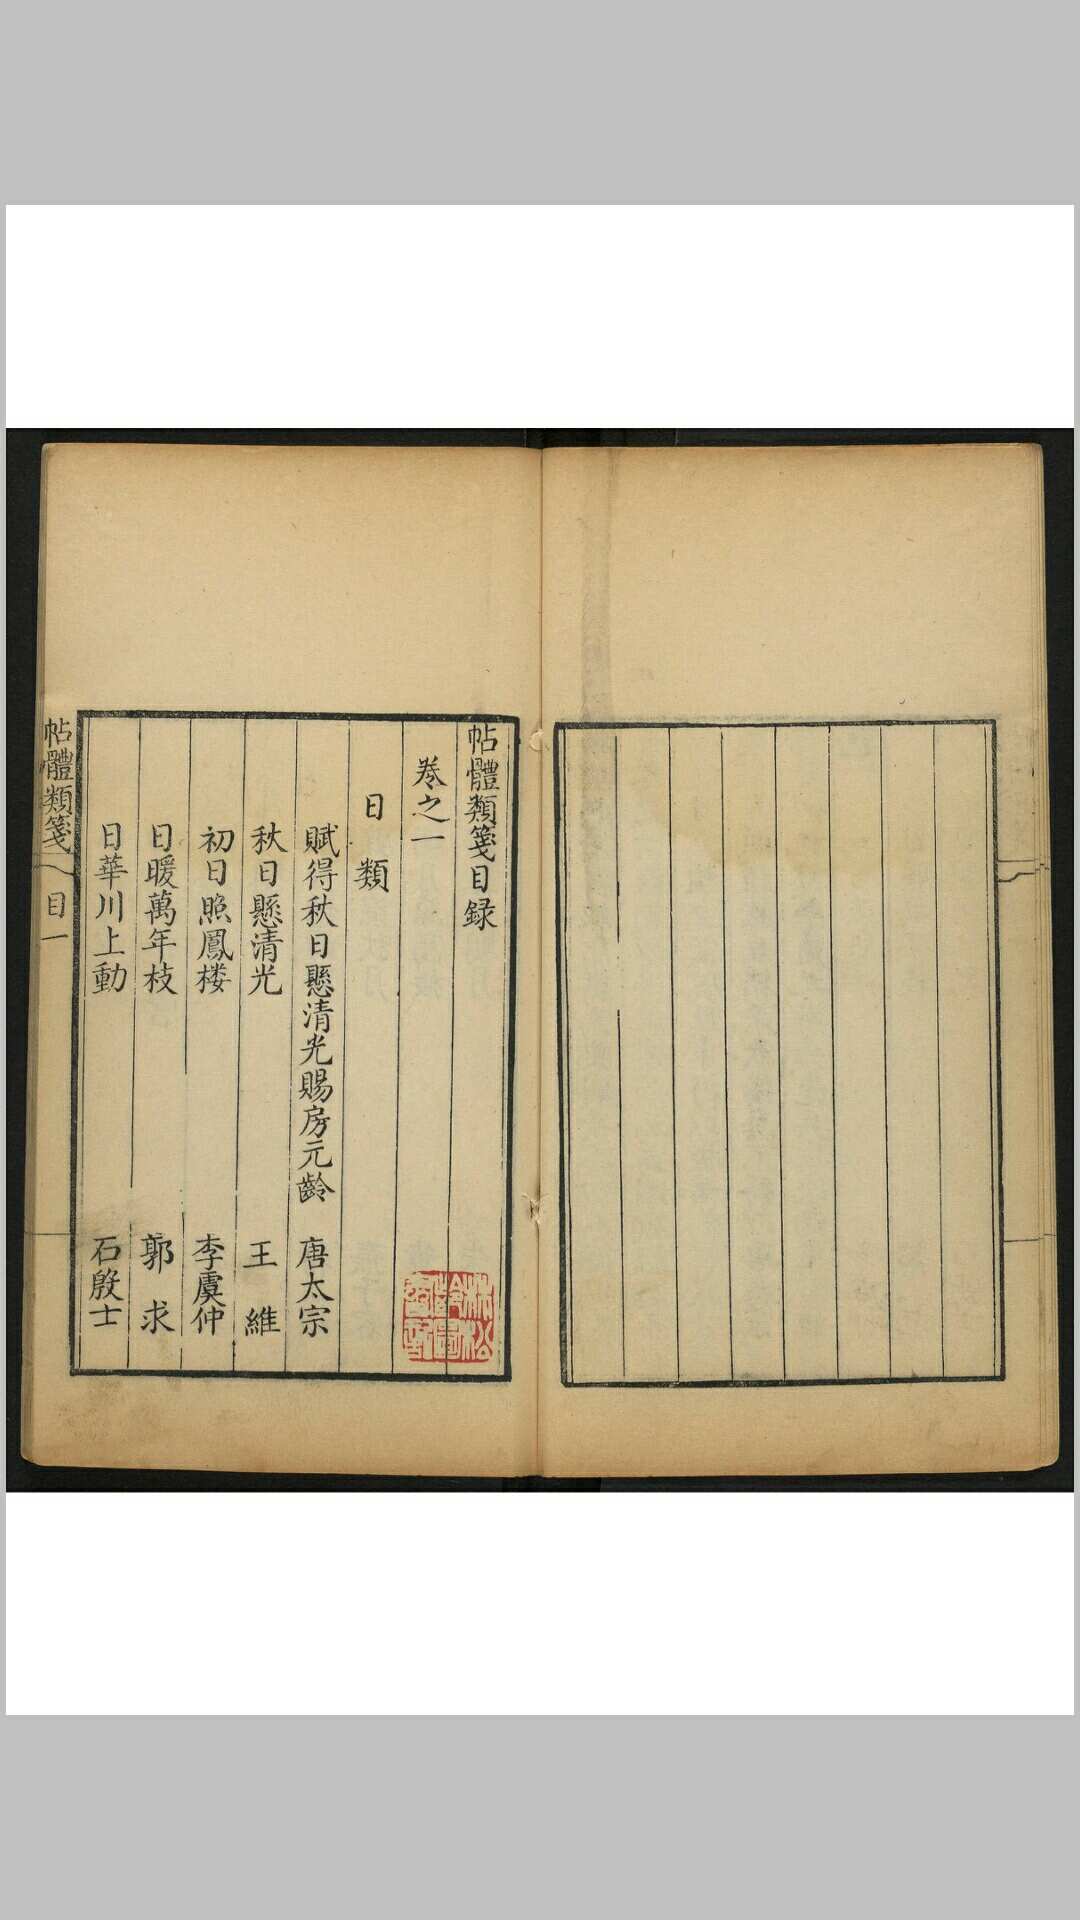 帖體類箋目録
卷之一
日類
賦得秋日懸清光賜房元齡 唐太宗
秋日懸清光 王維
初日照鳳樓 李虞仲
日暖萬年枝 郭求
日華川上動 石殷士
帖體類箋 目一